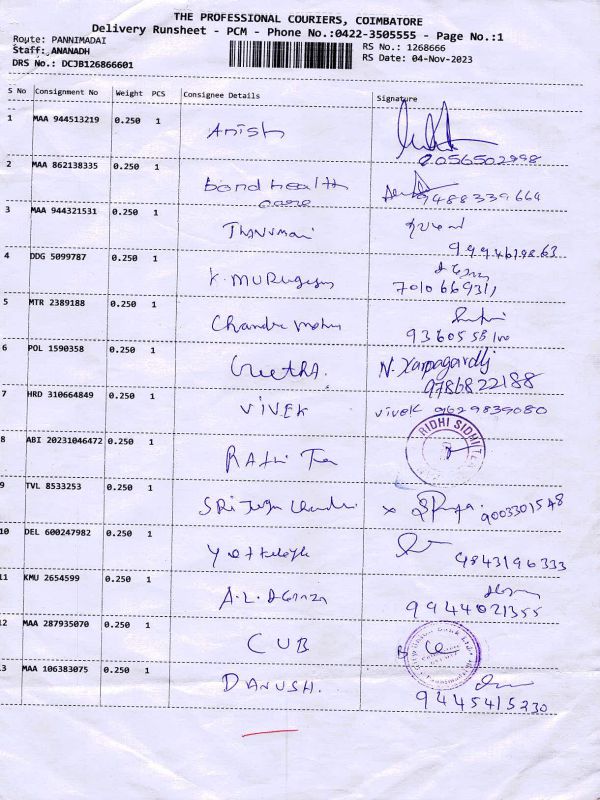 THE PROFESSIONAL COURIERS, COIMBATORE
Delivery Runsheet - PCM - Phone No.:0422-3505555 - Page No.:1
Route: PANNIMADAI
RS No.: 1268666
Staff: ANANADH
RS Date: 04-Nov-2023
DRS No.: DCJB126866601
S No Consignment No Weight PCS Consignee Details Signature
1 MAA 944513219 0.250 1 Anish
2 MAA 862138335 0.250 1 bond health care 9488339664
3 MAA 944321531 0.250 1
4 DDG 5099787 0.250 1 K. MURugesan 7010669311
5 MTR 2389188 0.250 1 Chandra mohan
6 POL 1590358 0.250 1 GeethA. N. Karpagardlj 9786822188
7 HRD 310664849 0.250 1 VIVEK vivek 9629839080
8 ABI 20231046472 0.250 1 RIDHI SIDHI
9 TVL 8533253 0.250 1 SRi 9003301548
10 DEL 600247982 0.250 1 9843196333
11 KMU 2654599 0.250 1 A.L. 9944021355
12 MAA 287935070 0.250 1 CUB
13 MAA 106383075 0.250 1 DANUSH. 9445415230